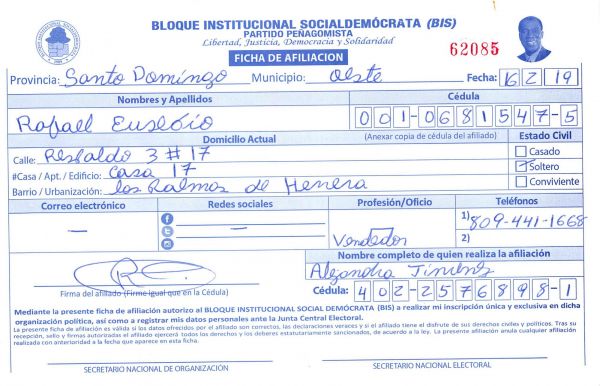 BLOQUE INSTITUCIONAL SOCIALDEMÓCRATA (BIS)
PARTIDO PEÑAGOMISTA
Libertad, Justicia, Democracia y Solidaridad
FICHA DE AFILIACION
62085
Provincia: Santo Domingo Municipio: Oeste Fecha: 16 2 19
Nombres y Apellidos Cédula
Rafael Eusebio 001-0681547-5
Domicilio Actual (Anexar copia de cédula del afiliado) Estado Civil
Calle: Respaldo 3 # 17 Casado
#Casa / Apt. / Edificio: Casa 17 Soltero
Barrio / Urbanización: las Palmas de Herrera Conviviente
Correo electrónico Redes sociales Profesión/Oficio Teléfonos
— — Vendedor 1) 809-441-1668
2)
Nombre completo de quien realiza la afiliación
Alejandra Jimenez
Firma del afiliado (Firme igual que en la Cédula) Cédula: 402-2576898-1
Mediante la presente ficha de afiliación autorizo al BLOQUE INSTITUCIONAL SOCIAL DEMÓCRATA (BIS) a realizar mi inscripción única y exclusiva en dicha
organización política, así como a registrar mis datos personales ante la Junta Central Electoral.
La presente ficha de afiliación es válida si los datos ofrecidos por el afiliado son correctos, las declaraciones veraces y si el afiliado tiene el disfrute de sus derechos civiles y políticos. Tras su
recepción, sello y firmas autorizadas el afiliado ejercerá todos los derechos y los deberes estatutariamente sancionados, de acuerdo a la ley. La presente afiliación anula cualquier afiliación
realizada con anterioridad a la fecha que aparece en esta ficha.
SECRETARIO NACIONAL DE ORGANIZACIÓN SECRETARIO NACIONAL ELECTORAL